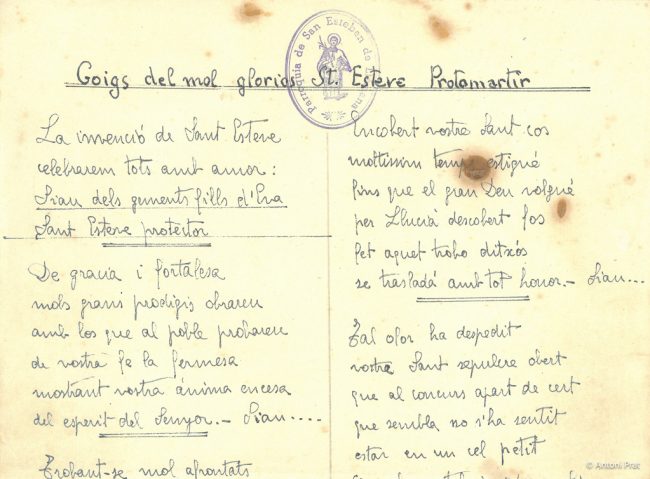 Goigs del mol glorios St. Esteve Protomartir
Parroquia de San Esteban de
La invenció de Sant Esteve
celebrarem tots amb amor:
Siau dels gements fills d'Eva
Sant Esteve protector
De gracia i fortalesa
mols grans prodigis obrareu
amb los que al poble probareu
de vostra fe la fermesa
mostrant vostra ánima encesa
del esperit del Senyor.- Siau....
Trobant-se mol afrontats
Encobert vostre Sant cos
moltissim temps estigué
fins que el gran Deu volgué
per Llucià descobert fos
fet aquet trobo ditxós
se trasladá amb tot honor.- Siau...
Tal olor ha despedit
vostre Sant sepulcre obert
que al concurs apart de cert
que sembla no s'ha sentit
estar en un cel petit
© Antoni Prat